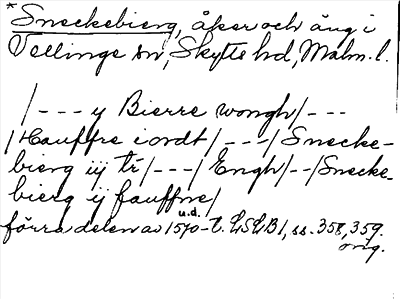 *Sneckebierg, åker och äng i
Vellinge sn, Skytts hd, Malm. l.
/--- y Bierre wongh/---
/Hauffre iordt/---/Snecke-
bierg iij tr/---/Engh/--/Snecke-
bierg ij fauffne/
u.d.
förra delen av 1570-t. LSLB1, ss. 358, 359.
orig.